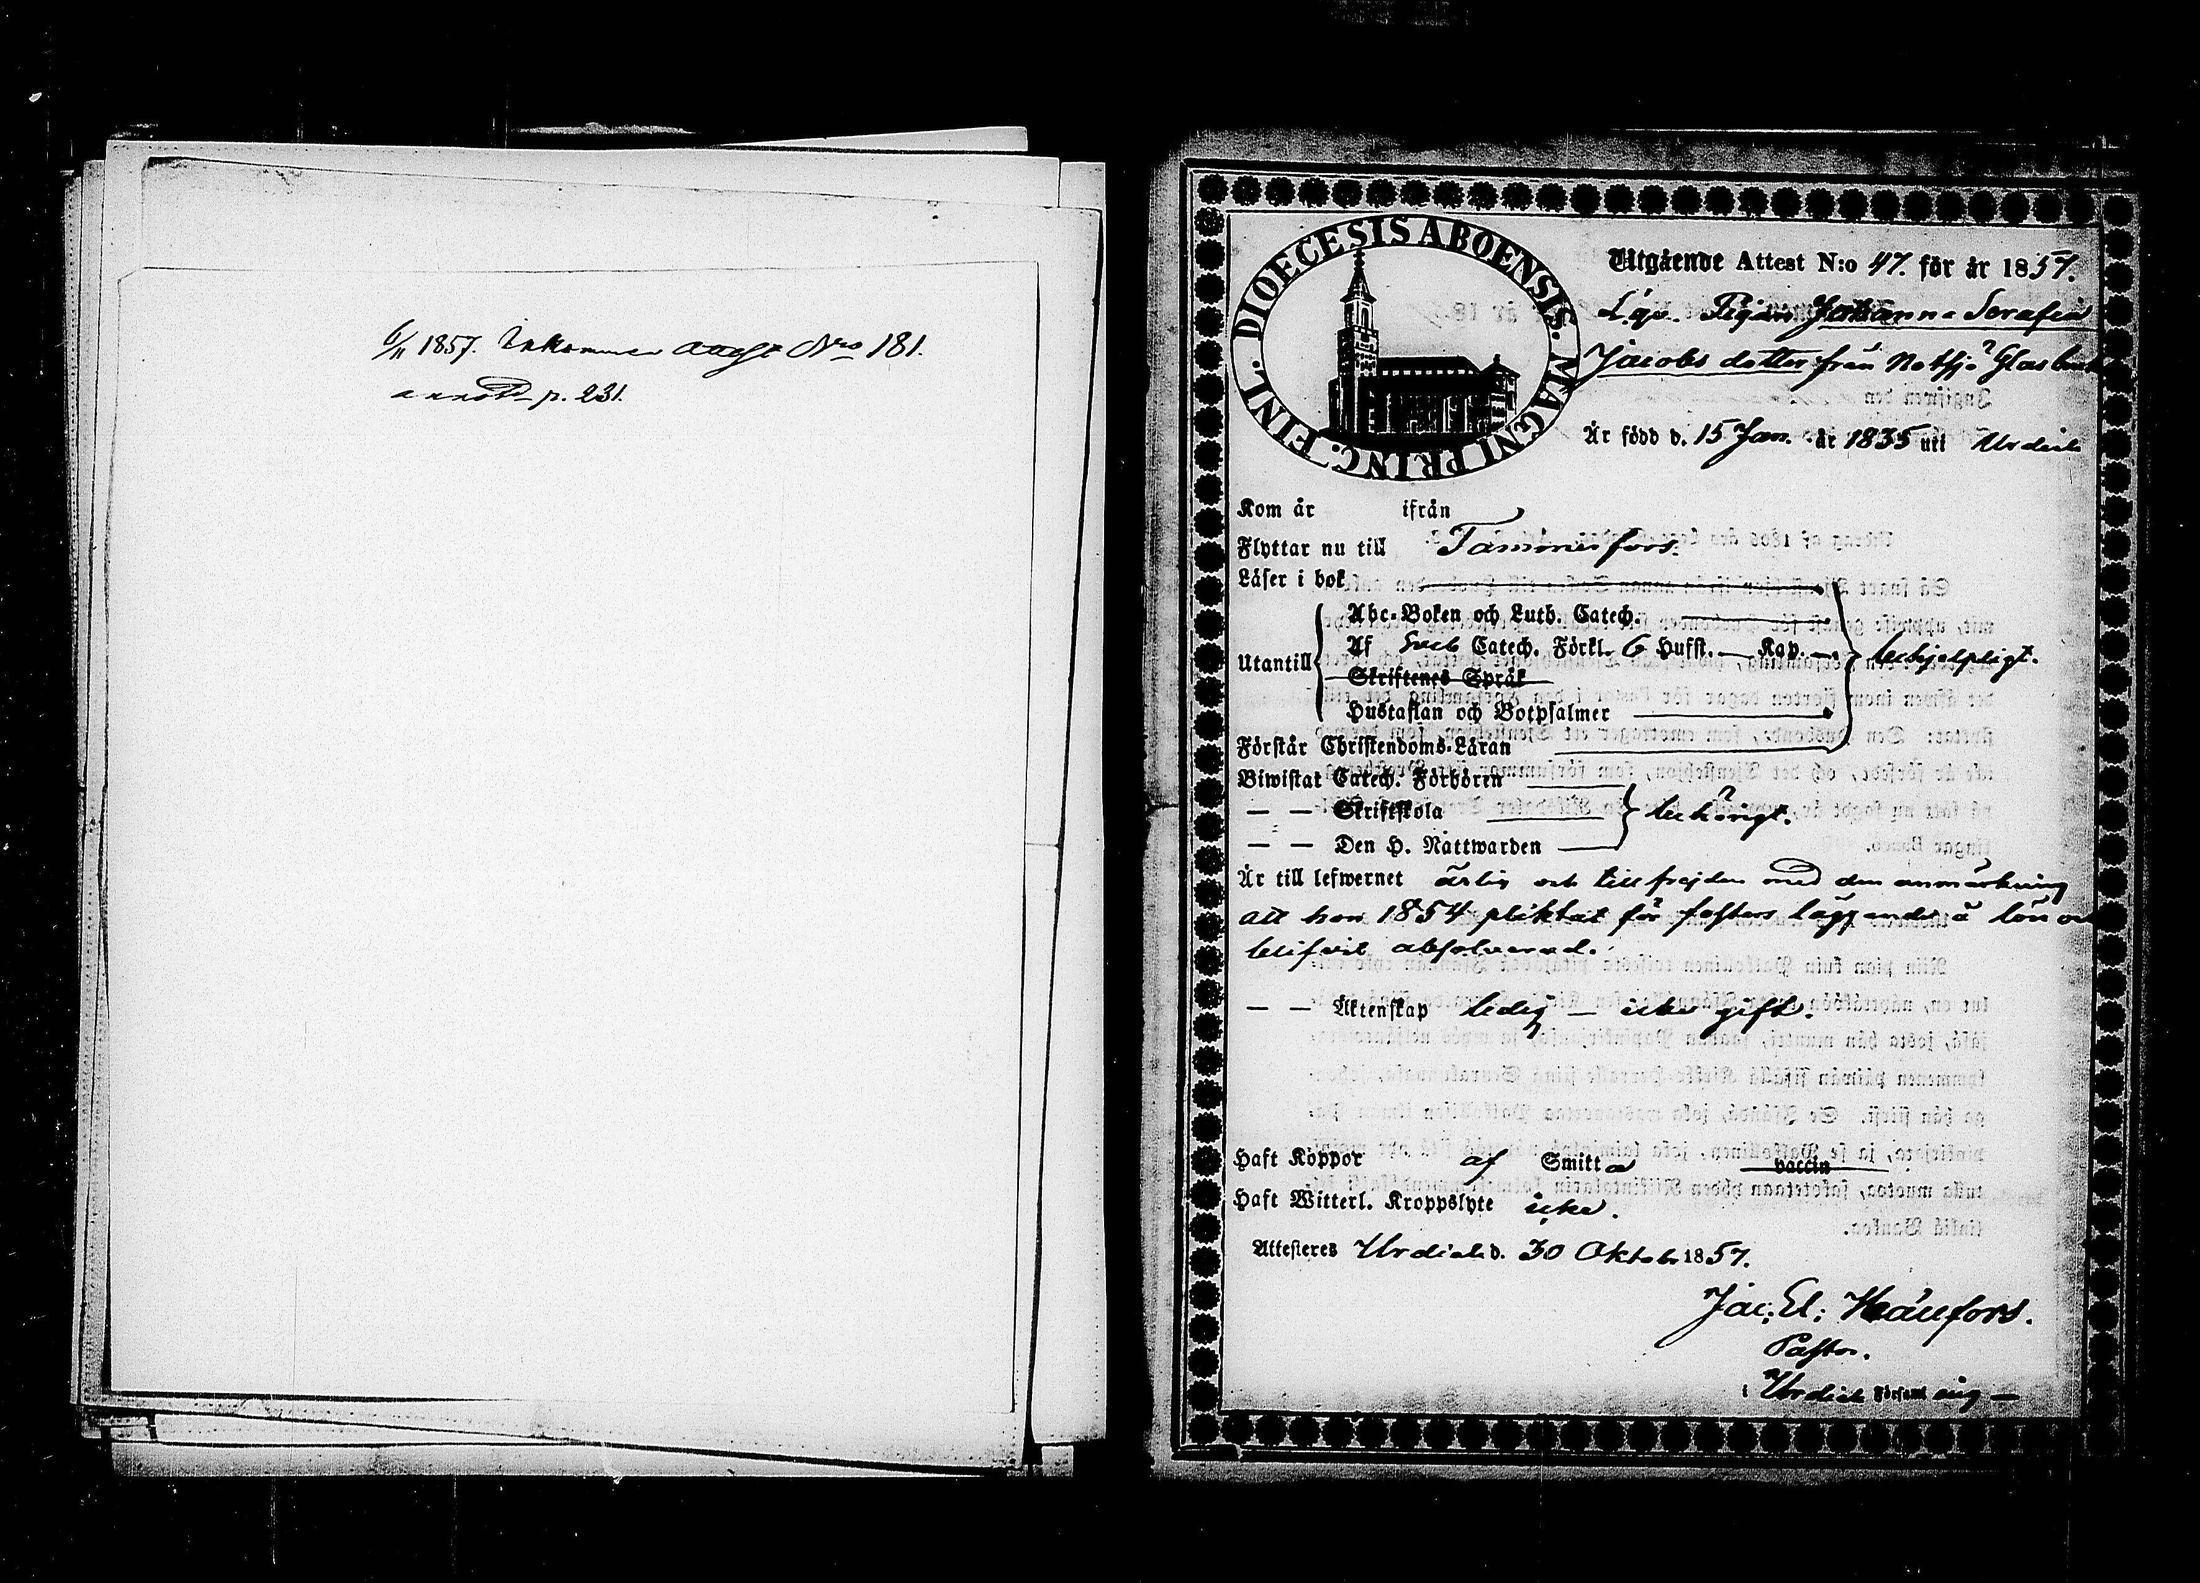 6/11 1857. Inkommen attest Nro 181.
annot. p. 231.
DIOECESIS ABOENSIS. MAGNI PRINC. FINL.
Utgående Attest N:o 47. för år 1857.
Pigan Johanna Serafia
Jacobs dotter från Notsjö Glasbruk
Är född d. 15 Jan. år 1835 uti Urdiala
Kom år ifrån
Flyttar nu till Tammerfors.
Läser i bok
Abc-Boken och Luth. Catech.
Utantill
Af Sveb Catech. Förkl. 6 Hufst. — Kap. —. behjelpligt.
Skriftenes Språk
Hustaflan och Botpsalmer
Förstår Christendoms-Läran
Biwistat Catech. Förhören
— — Skriftskola behörigt.
— — Den H. Nattwarden
Är till lefwernet ärlig och till frejden med den anmärkning
att hon 1854 pliktat för fosters läggande å lön och
blifvit absolverad.
— — Äktenskap ledig — icke gift.
Haft Koppor af Smitta vaccin
Haft Witterl. Kroppslyte icke.
Attesteras Urdiala d. 30 Oktob. 1857.
Jac. El:
Pastor.
i Urdiala Församling —